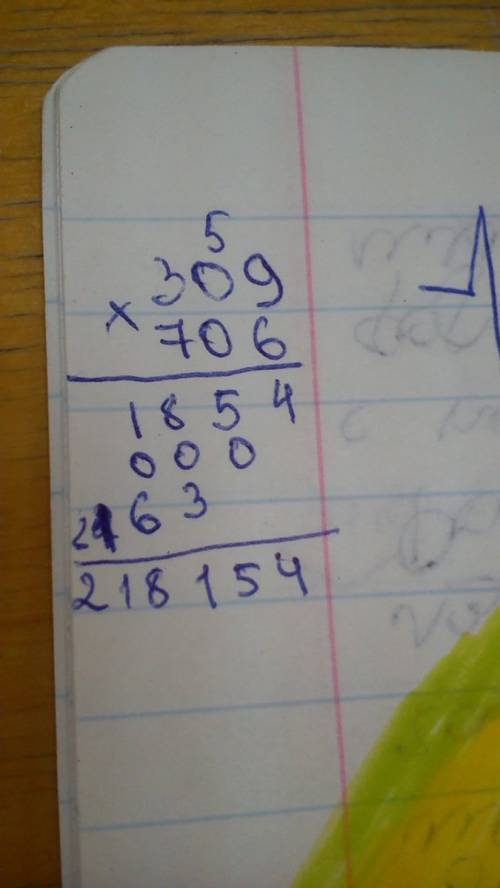 5
309
× 706
1854
000
2163
218154